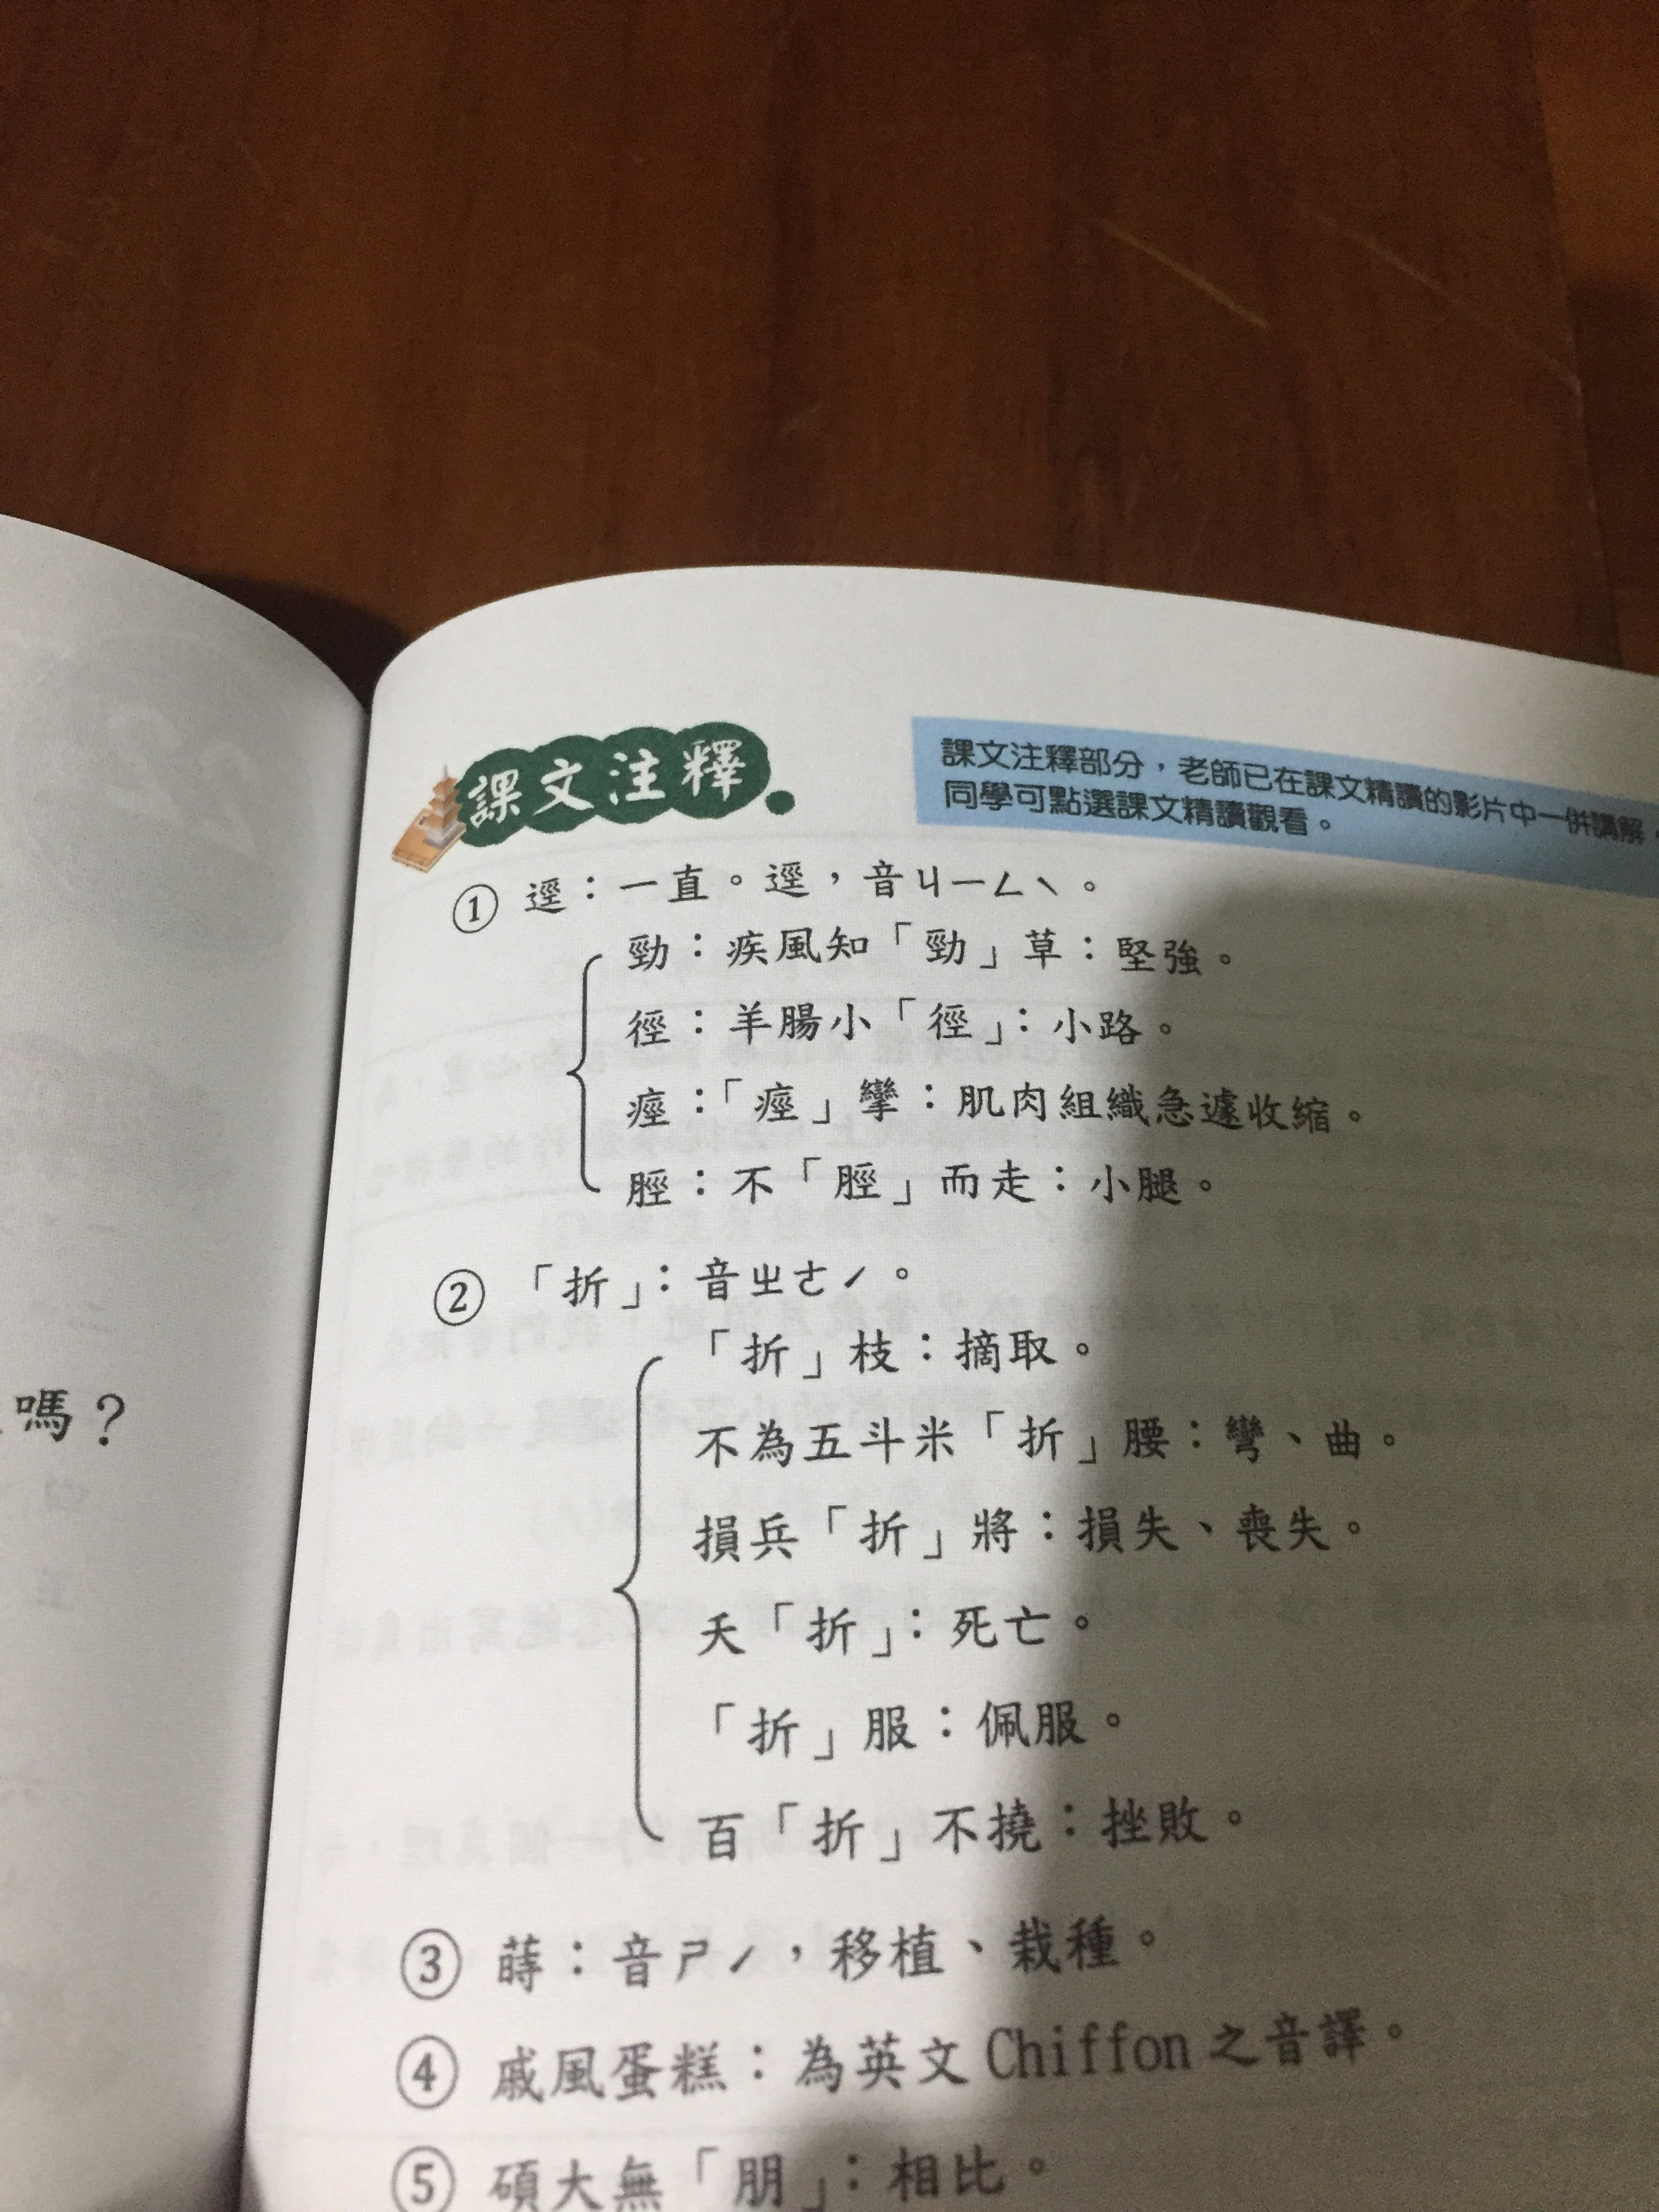 課文注釋
課文注釋部分，老師已在課文精讀的影片中一併講解，
同學可點選課文精讀觀看。
① 逕：一直。逕，音ㄐㄧㄥˋ。
勁：疾風知「勁」草：堅強。
徑：羊腸小「徑」：小路。
痙：「痙」攣：肌肉組織急遽收縮。
脛：不「脛」而走：小腿。
② 「折」：音ㄓㄜˊ。
「折」枝：摘取。
不為五斗米「折」腰：彎、曲。
損兵「折」將：損失、喪失。
夭「折」：死亡。
「折」服：佩服。
百「折」不撓：挫敗。
③ 蒔：音ㄕˊ，移植、栽種。
④ 戚風蛋糕：為英文 Chiffon 之音譯。
⑤ 碩大無「朋」：相比。
嗎？